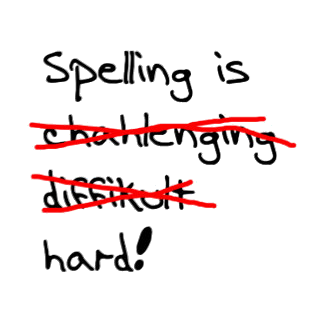 Spelling is
chahlenging
diffikult
hard!